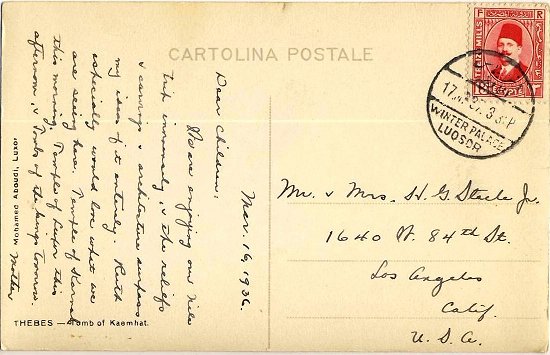 CARTOLINA POSTALE
Mar. 16, 1936.
Dear Children:
We are enjoying our Nile
trip immensely, & the reliefs
& carvings & architecture surpass
my idea of it entirely. Ruth
especially would love what we
are seeing here. Temple of Karnak
this morning, Temple of Luxor this
afternoon, & Tombs of the Kings tomorrow.
Mother
Mohamed Aboudi, Luxor
THEBES — Tomb of Kaemhat.
F R
EGYPTE
WINTER PALACE
LUQSOR
Mr. & Mrs. H. G. Steele Jr.
1640 W. 84th St.
Los Angeles
Calif.
U. S. A.